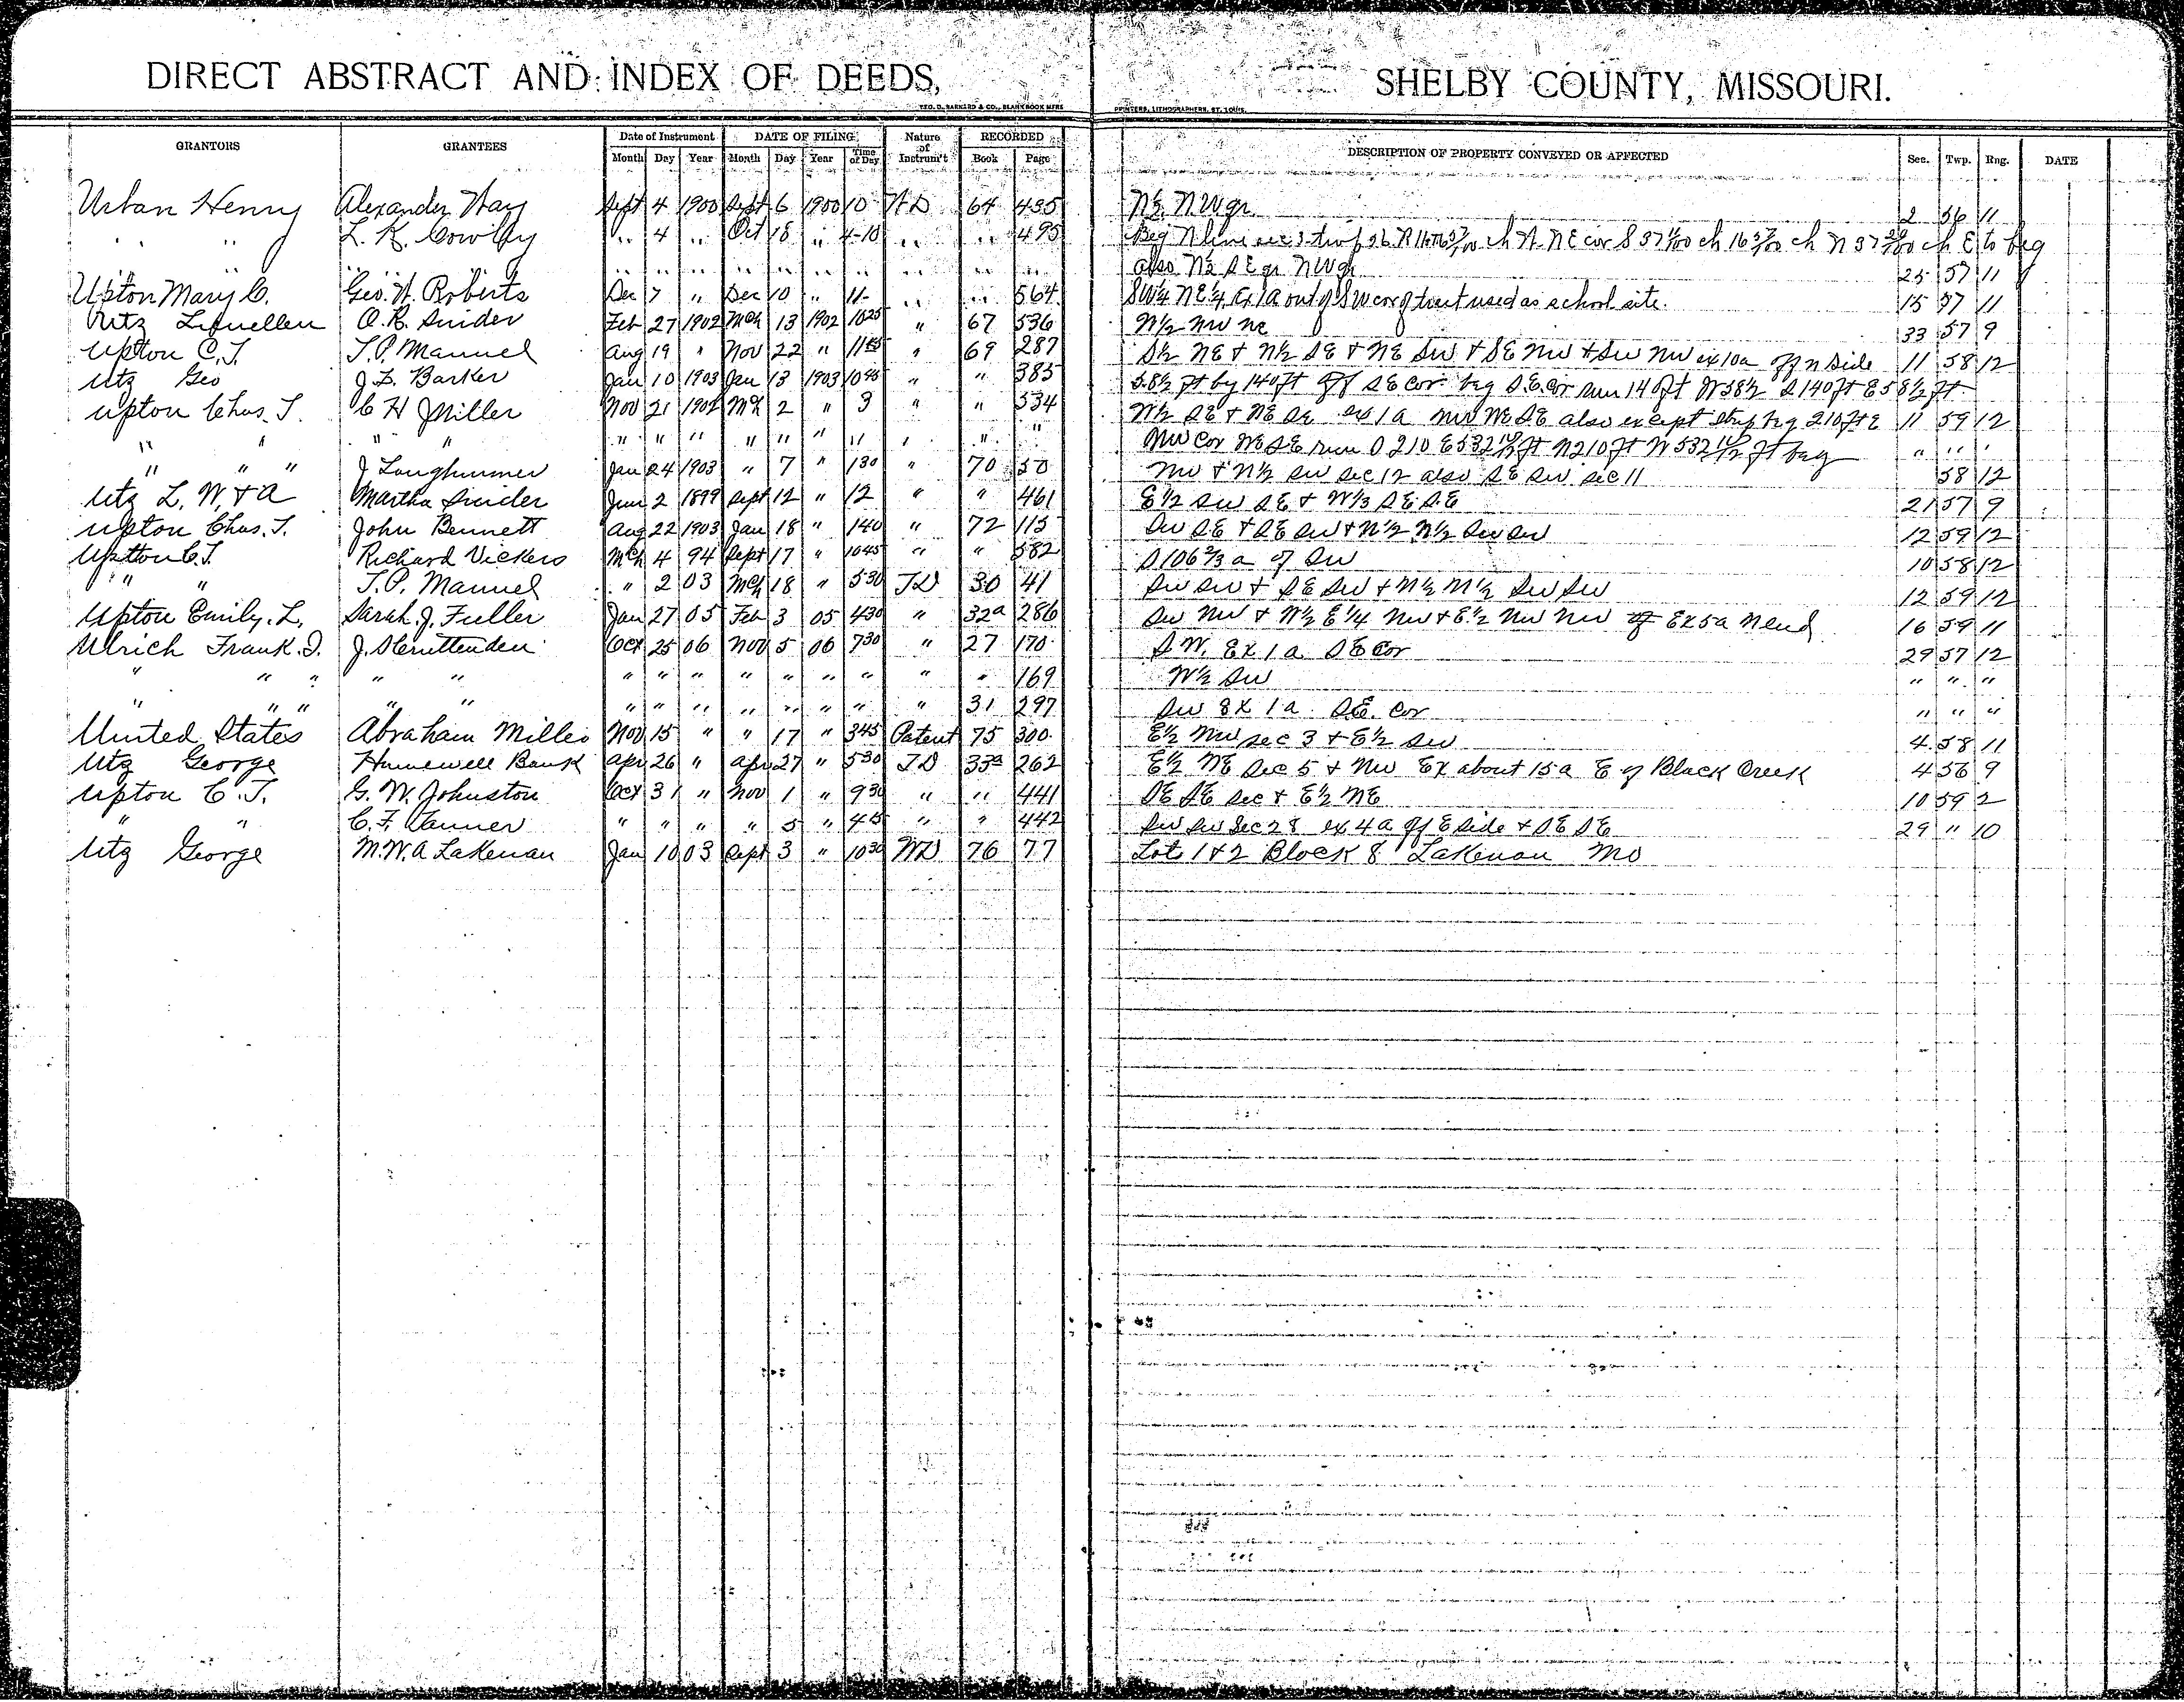 DIRECT ABSTRACT AND INDEX OF DEEDS, SHELBY COUNTY, MISSOURI.
GEO. D. BARNARD & CO., BLANK BOOK MFRS PRINTERS, LITHOGRAPHERS, ST. LOUIS.
GRANTORS GRANTEES Date of Instrument DATE OF FILING Nature of Instrum't RECORDED DESCRIPTION OF PROPERTY CONVEYED OR AFFECTED Sec. Twp. Rng. DATE
Month Day Year Month Day Year Time of Day Book Page
Urban Henry Alexander Hay Sept 4 1900 Sept 6 1900 10 WD 64 435 N½ NW qr 2 56 11
" " L. K. Cowlby " 4 " Oct 18 " 4-10 " " 495 Beg N line sec 3 twp 56 R 11 ch W NE cor S 37 ch 16 ch N 37 ch E to beg
" " " " " " " " " also N½ SE qr NW qr 25 57 11
Upton Mary C. Geo. W. Roberts Dec 7 " Dec 10 " 11- " " 564 SW¼ NE¼ Ex 1A out of SW cor of tract used as school site. 15 57 11
Utz Lewellen O. R. Snider Feb 27 1902 Mch 13 1902 1025 " 67 536 N½ NW NE 33 57 9
Upton C. T. T. P. Manuel Aug 19 " Nov 22 " 1155 " 69 287 S½ NE & N½ SE & NE SW & SE NW & SW NW ex 10a off N Side 11 58 12
Utz Geo J. L. Barker Jan 10 1903 Jan 13 1903 1045 " " 385 58½ ft by 140 ft off SE cor beg S.E. cor run 140 ft W 58½ S 140 ft E 58½ ft.
Upton Chas. T. C H Miller Nov 21 1902 Mch 2 " 3 " " 534 N½ SE & NE SE ex 1a NW NE SE also except strip beg 210 ft E 11 59 12
" " " " " " " " " " " " " " NW cor NE SE run S 210 E 532 ft N 210 ft W 532 ft beg " " "
" " " J Longhimmer Jan 24 1903 " 7 " 130 " 70 50 NW & N½ SW Sec 12 also SE SW sec 11 58 12
Utz L. W. & A Martha Snider June 2 1899 Sept 12 " 12 " " 461 E½ SW SE & W⅓ SE SE 21 57 9
Upton Chas. T. John Bennett Aug 22 1903 Jan 18 " 140 " 72 115 SW SE & SE SW & N½ N½ SW SW 12 59 12
Upton C. T. Richard Vickers Mch 4 94 Sept 17 " 1045 " " 582 S 106⅔ a of SW 10 58 12
" " T. P. Manuel " 2 03 Mch 18 " 530 TD 30 41 SW SW & SE SW & N½ N½ SW SW 12 59 12
Upton Emily. L. Sarah J. Fuller Jan 27 05 Feb 3 05 430 " 32a 286 SW NW & W½ E¼ NW & E½ NW NW of Ex 5a N end 16 59 11
Ulrich Frank. I. J. S Cruttenden Oct 25 06 Nov 5 06 730 " 27 170 S W. Ex 1a SE Cor 29 57 12
" " " " " " " " " " " " " " 169 W½ SW " " "
" " " " " " " " " " " " " 31 297 SW EX 1a SE. cor " " "
United States Abraham Miller Nov 15 " " 17 " 345 Patent 75 300 E½ NW sec 3 & E½ SW 4 58 11
Utz George Hunnewell Bank Apr 26 " Apr 27 " 530 TD 33a 262 E½ NE Sec 5 & NW Ex about 15a E of Black Creek 4 56 9
Upton C. T. G. W. Johnston Oct 31 " Nov 1 " 930 " " 441 SE SE Sec & E½ NE 10 59 2
" " C. F. Vanner " " " " 5 " 445 " " 442 SW SW Sec 28 ex 4a off E side & SE SE 29 " 10
Utz George M. W. A Lakenan Jan 10 03 Sept 3 " 1030 WD 76 77 Lots 1 & 2 Block 8 Lakenan Mo